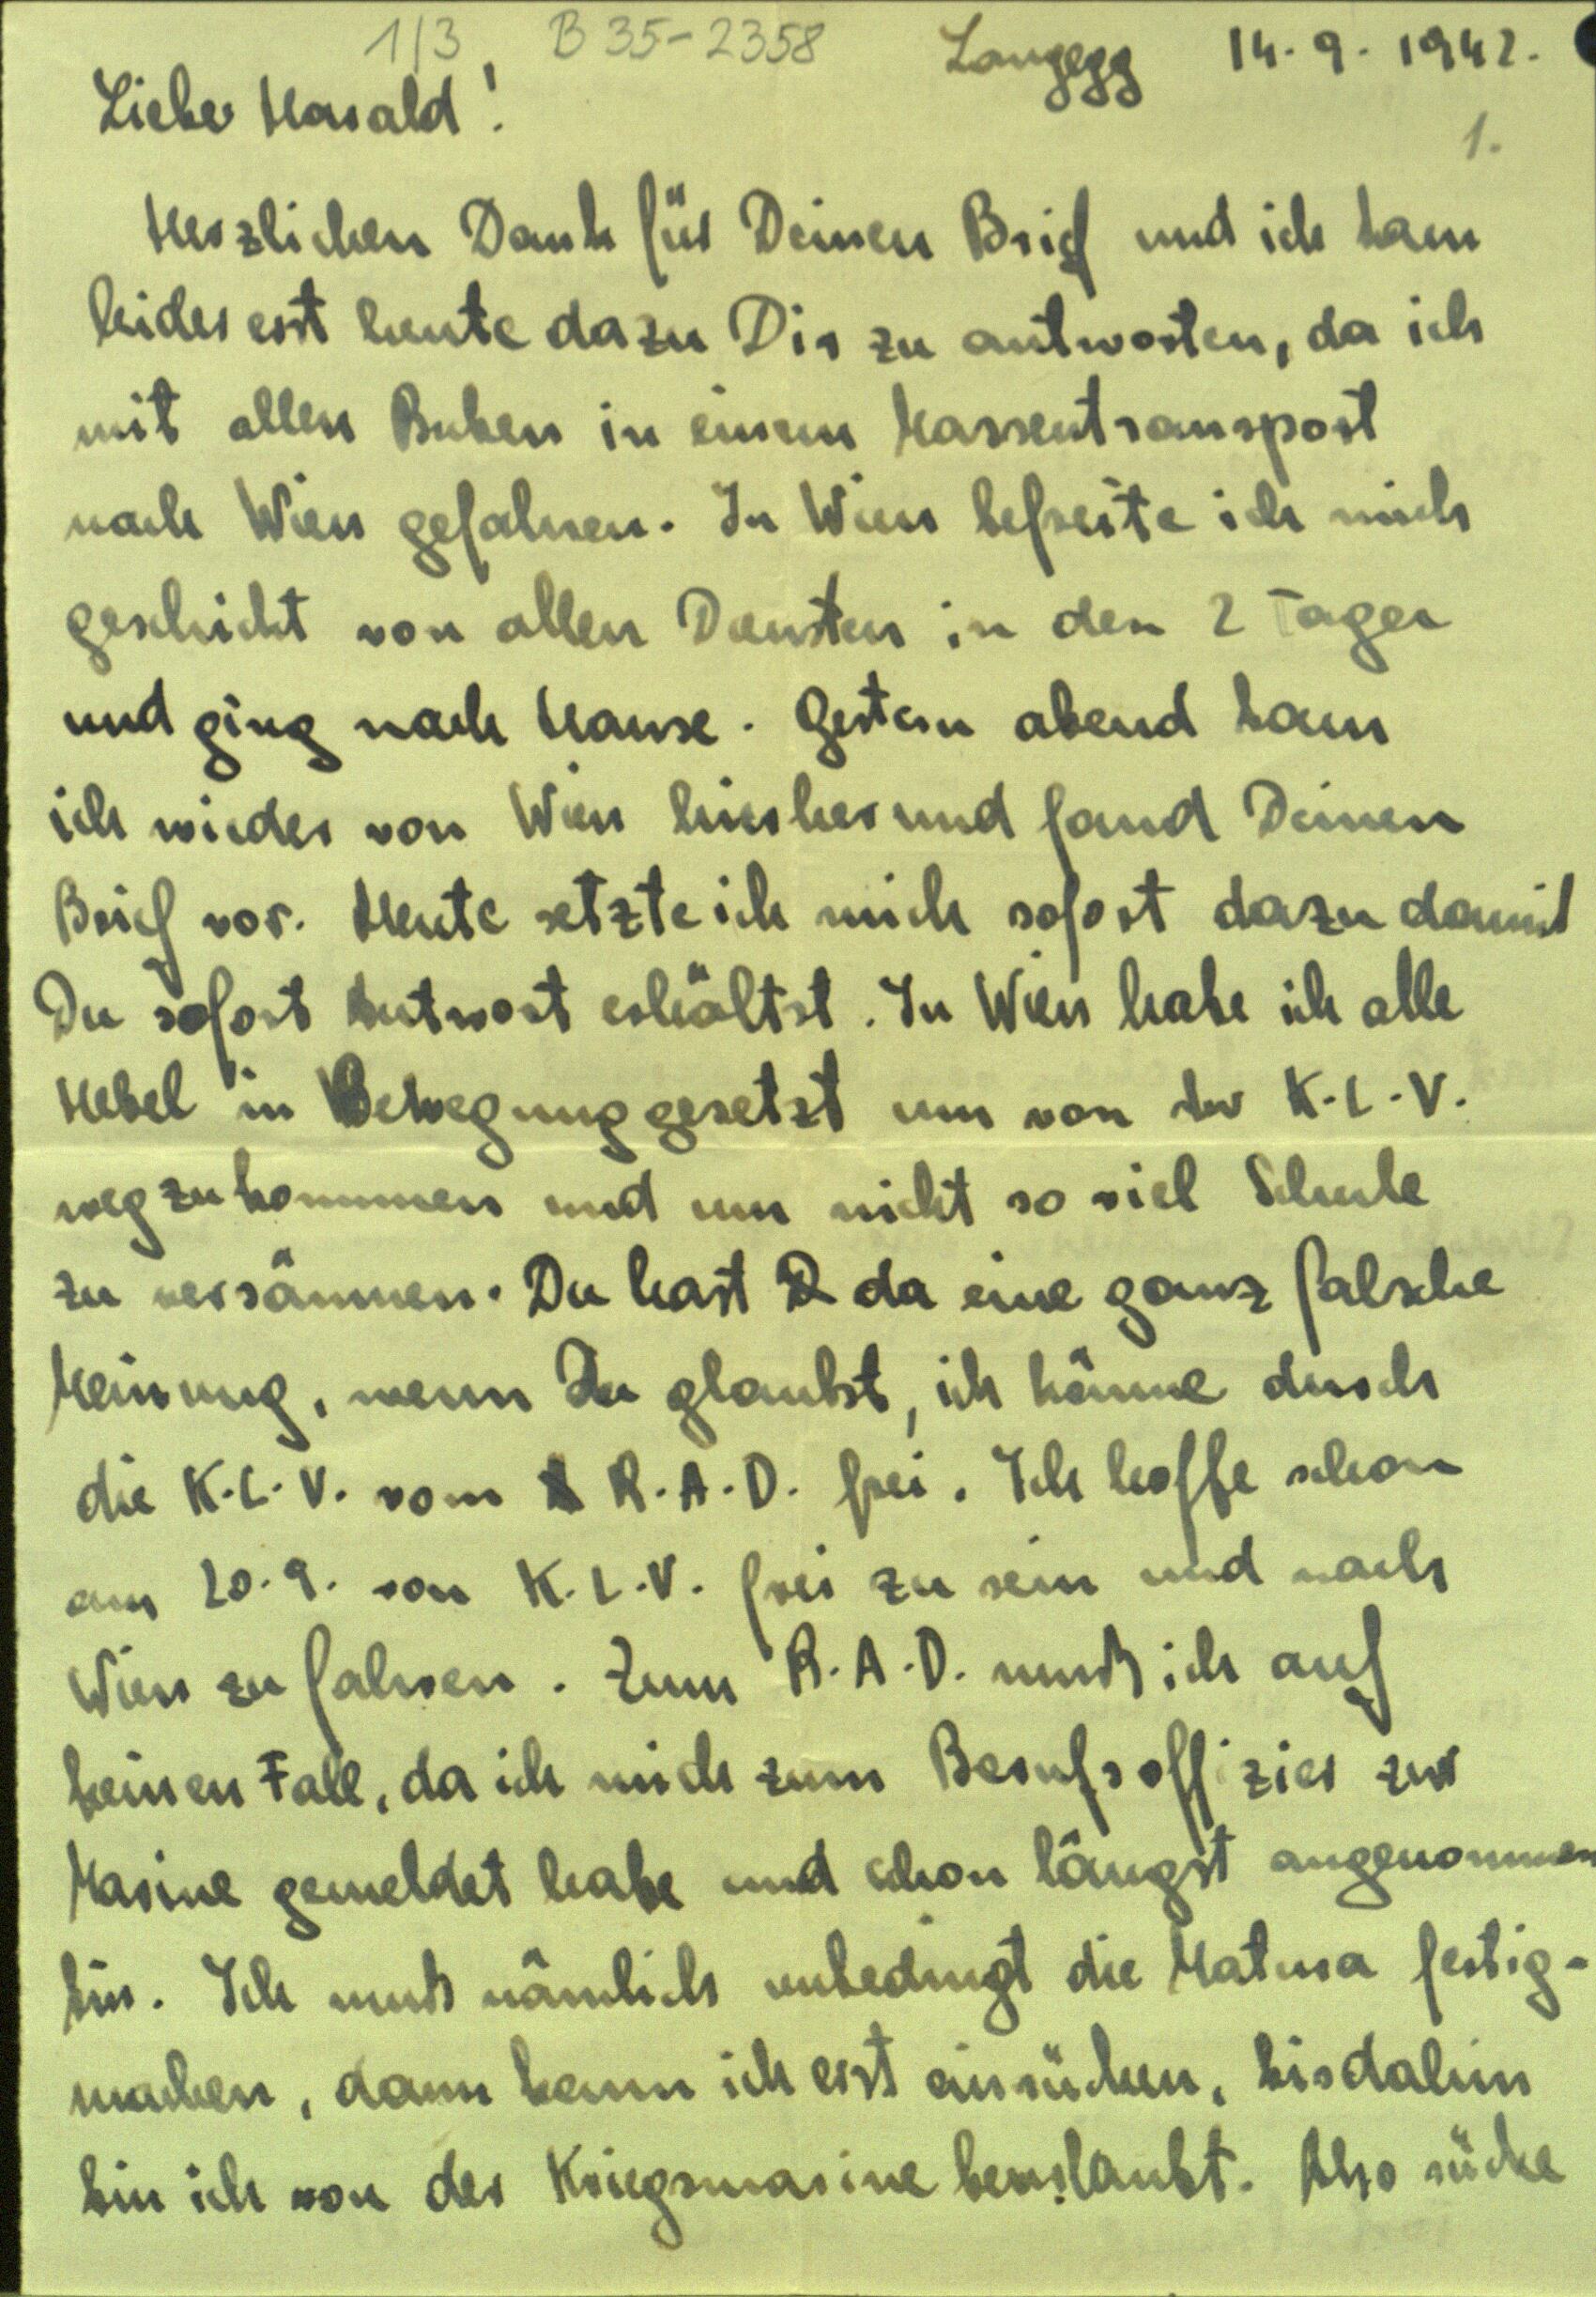 1/3 B 35-2358 Langegg 14.9.1942.
Lieber Harald!
1.
Herzlichen Dank für Deinen Brief und ich kam
leider erst heute dazu Dir zu antworten, da ich
mit allen Buben in einem Massentransport
nach Wien gefahren. In Wien befreite ich mich
geschickt von allen Diensten in den 2 Tagen
und ging nach Hause. Gestern abend kam
ich wieder von Wien hierher und fand Deinen
Brief vor. Heute setzte ich mich sofort dazu damit
Du sofort Antwort erhältst. In Wien habe ich alle
Hebel in Bewegung gesetzt um von der K.L.V.
wegzukommen und um nicht so viel Schule
zu versäumen. Du hast da eine ganz falsche
Meinung, wenn Du glaubst, ich könne durch
die K.L.V. vom R.A.D. frei. Ich hoffe schon
am 20.9. von K.L.V. frei zu sein und nach
Wien zu fahren. Zum R.A.D. muß ich auf
keinen Fall, da ich mich zum Berufsoffizier zur
Marine gemeldet habe und schon längst angenommen
bin. Ich muß nämlich unbedingt die Matura fertig-
machen, dann kann ich erst einrücken, bis dahin
bin ich von der Kriegsmarine beurlaubt. Also rücke